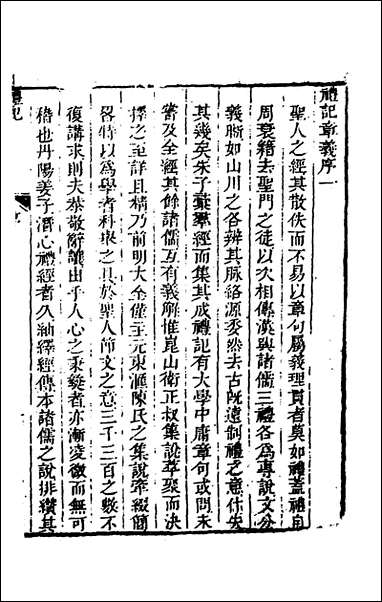 禮記章義序一
聖人之經其散佚而不易以章句屬義理貫者莫如禮蓋禮自
周衰籍去聖門之徒以次相傳漢興諸儒三禮各爲專說文分
義斷如山川之各辨其脈絡源委然去古既遠制禮之意什失
其幾矣朱子彙羣經而集其成禮記有大學中庸章句或問未
嘗及全經其餘諸儒互有義解惟崑山衛正叔集說萃聚而決
擇之至詳且精乃前明大全僅主元東滙陳氏之集說牽綴簡
畧特以爲學者科舉之具於聖人節文之意三千三百之數不
復講求則夫恭敬辭讓由乎人心之秉彝者亦漸凌微而無可
稽也丹陽姜子潛心禮經者久紬繹經傳本諸儒之說排纘其